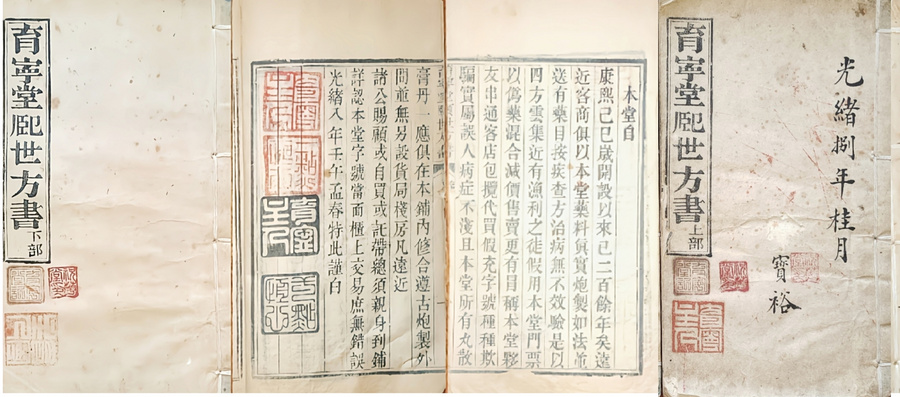 光緒捌年桂月
寶裕
育寧堂熙世方書
上部
本堂自
康熙己巳歲開設以來已二百餘年矣遠
近客商俱以本堂藥料眞實炮製如法並
送有藥目按疾查方治病無不效驗是以
四方雲集近有漁利之徒假用本堂門票
以僞藥混合減價售賣更有目稱本堂夥
友串通客店包攬代買假充字號種種欺
騙實屬誤人病症不淺且本堂所有丸散
膏丹一應俱在本鋪內修合遵古炮製外
間並無另設貨局棧房凡遠近
諸公賜顧或自買或託帶總須親身到鋪
詳認本堂字號當面櫃上交易庶無錯誤
光緒八年壬午孟春特此謹白
育寧堂熙世方書
下部